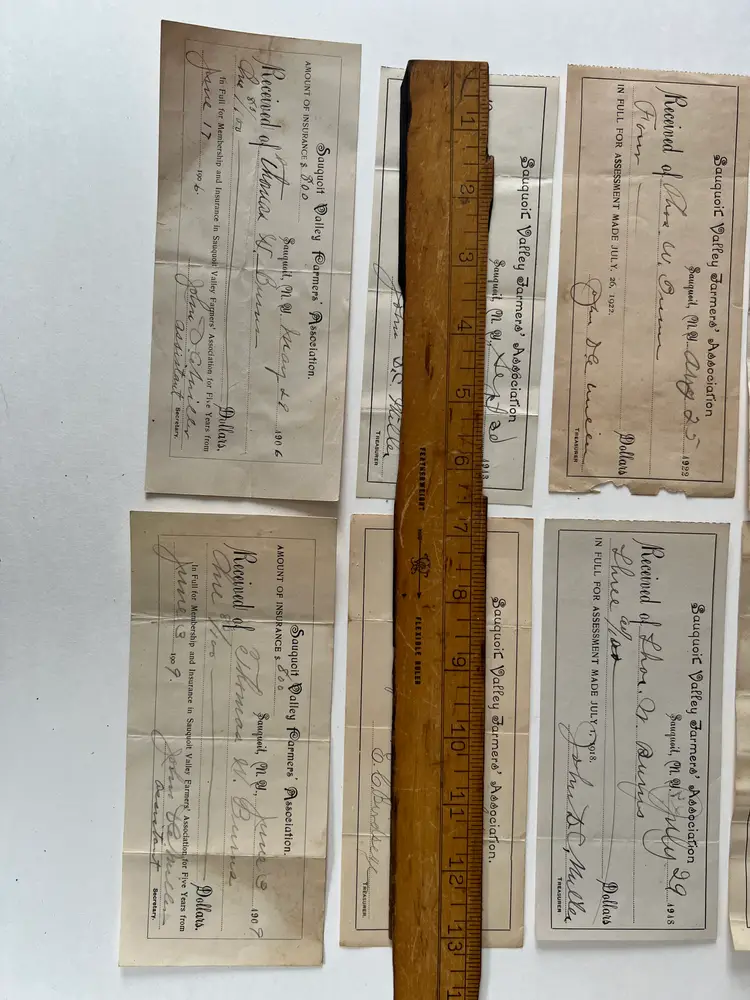 Sauquoit Valley Farmers' Association.
AMOUNT OF INSURANCE $ 800
Sauquoit, N. Y. May 28 1906
Received of Thomas W. Burns
One 80/100 Dollars,
In Full for Membership and Insurance in Sauquoit Valley Farmers' Association for Five Years from
June 17 1906.
assistant Secretary.
Sauquoit Valley Farmers' Association
Sauquoit, N. Y. Sept 1913
John D.C. Miller
TREASURER
Sauquoit Valley Farmers' Association
Sauquoit, N. Y. Aug 25 1922
Received of Thos. W. Burns
Four Dollars
IN FULL FOR ASSESSMENT MADE JULY, 26, 1922.
TREASURER
Sauquoit Valley Farmers' Association.
AMOUNT OF INSURANCE $ 800
Sauquoit, N. Y., June 3 1909
Received of Thomas W. Burns
One Dollars.
In Full for Membership and Insurance in Sauquoit Valley Farmers' Association for Five Years from
June 3 1909.
assistant Secretary.
Sauquoit Valley Farmers' Association.
TREASURER
Sauquoit Valley Farmers' Association
Sauquoit, N. Y. July 29 1918
Received of Thos. W. Burns
Three Dollars
IN FULL FOR ASSESSMENT MADE JULY 1, 1918.
John D.C. Miller
TREASURER
1 2 3 4 5 6 7 8 9 10 11 12 13 1
FEATHERWEIGHT
FLEXIBLE RULED